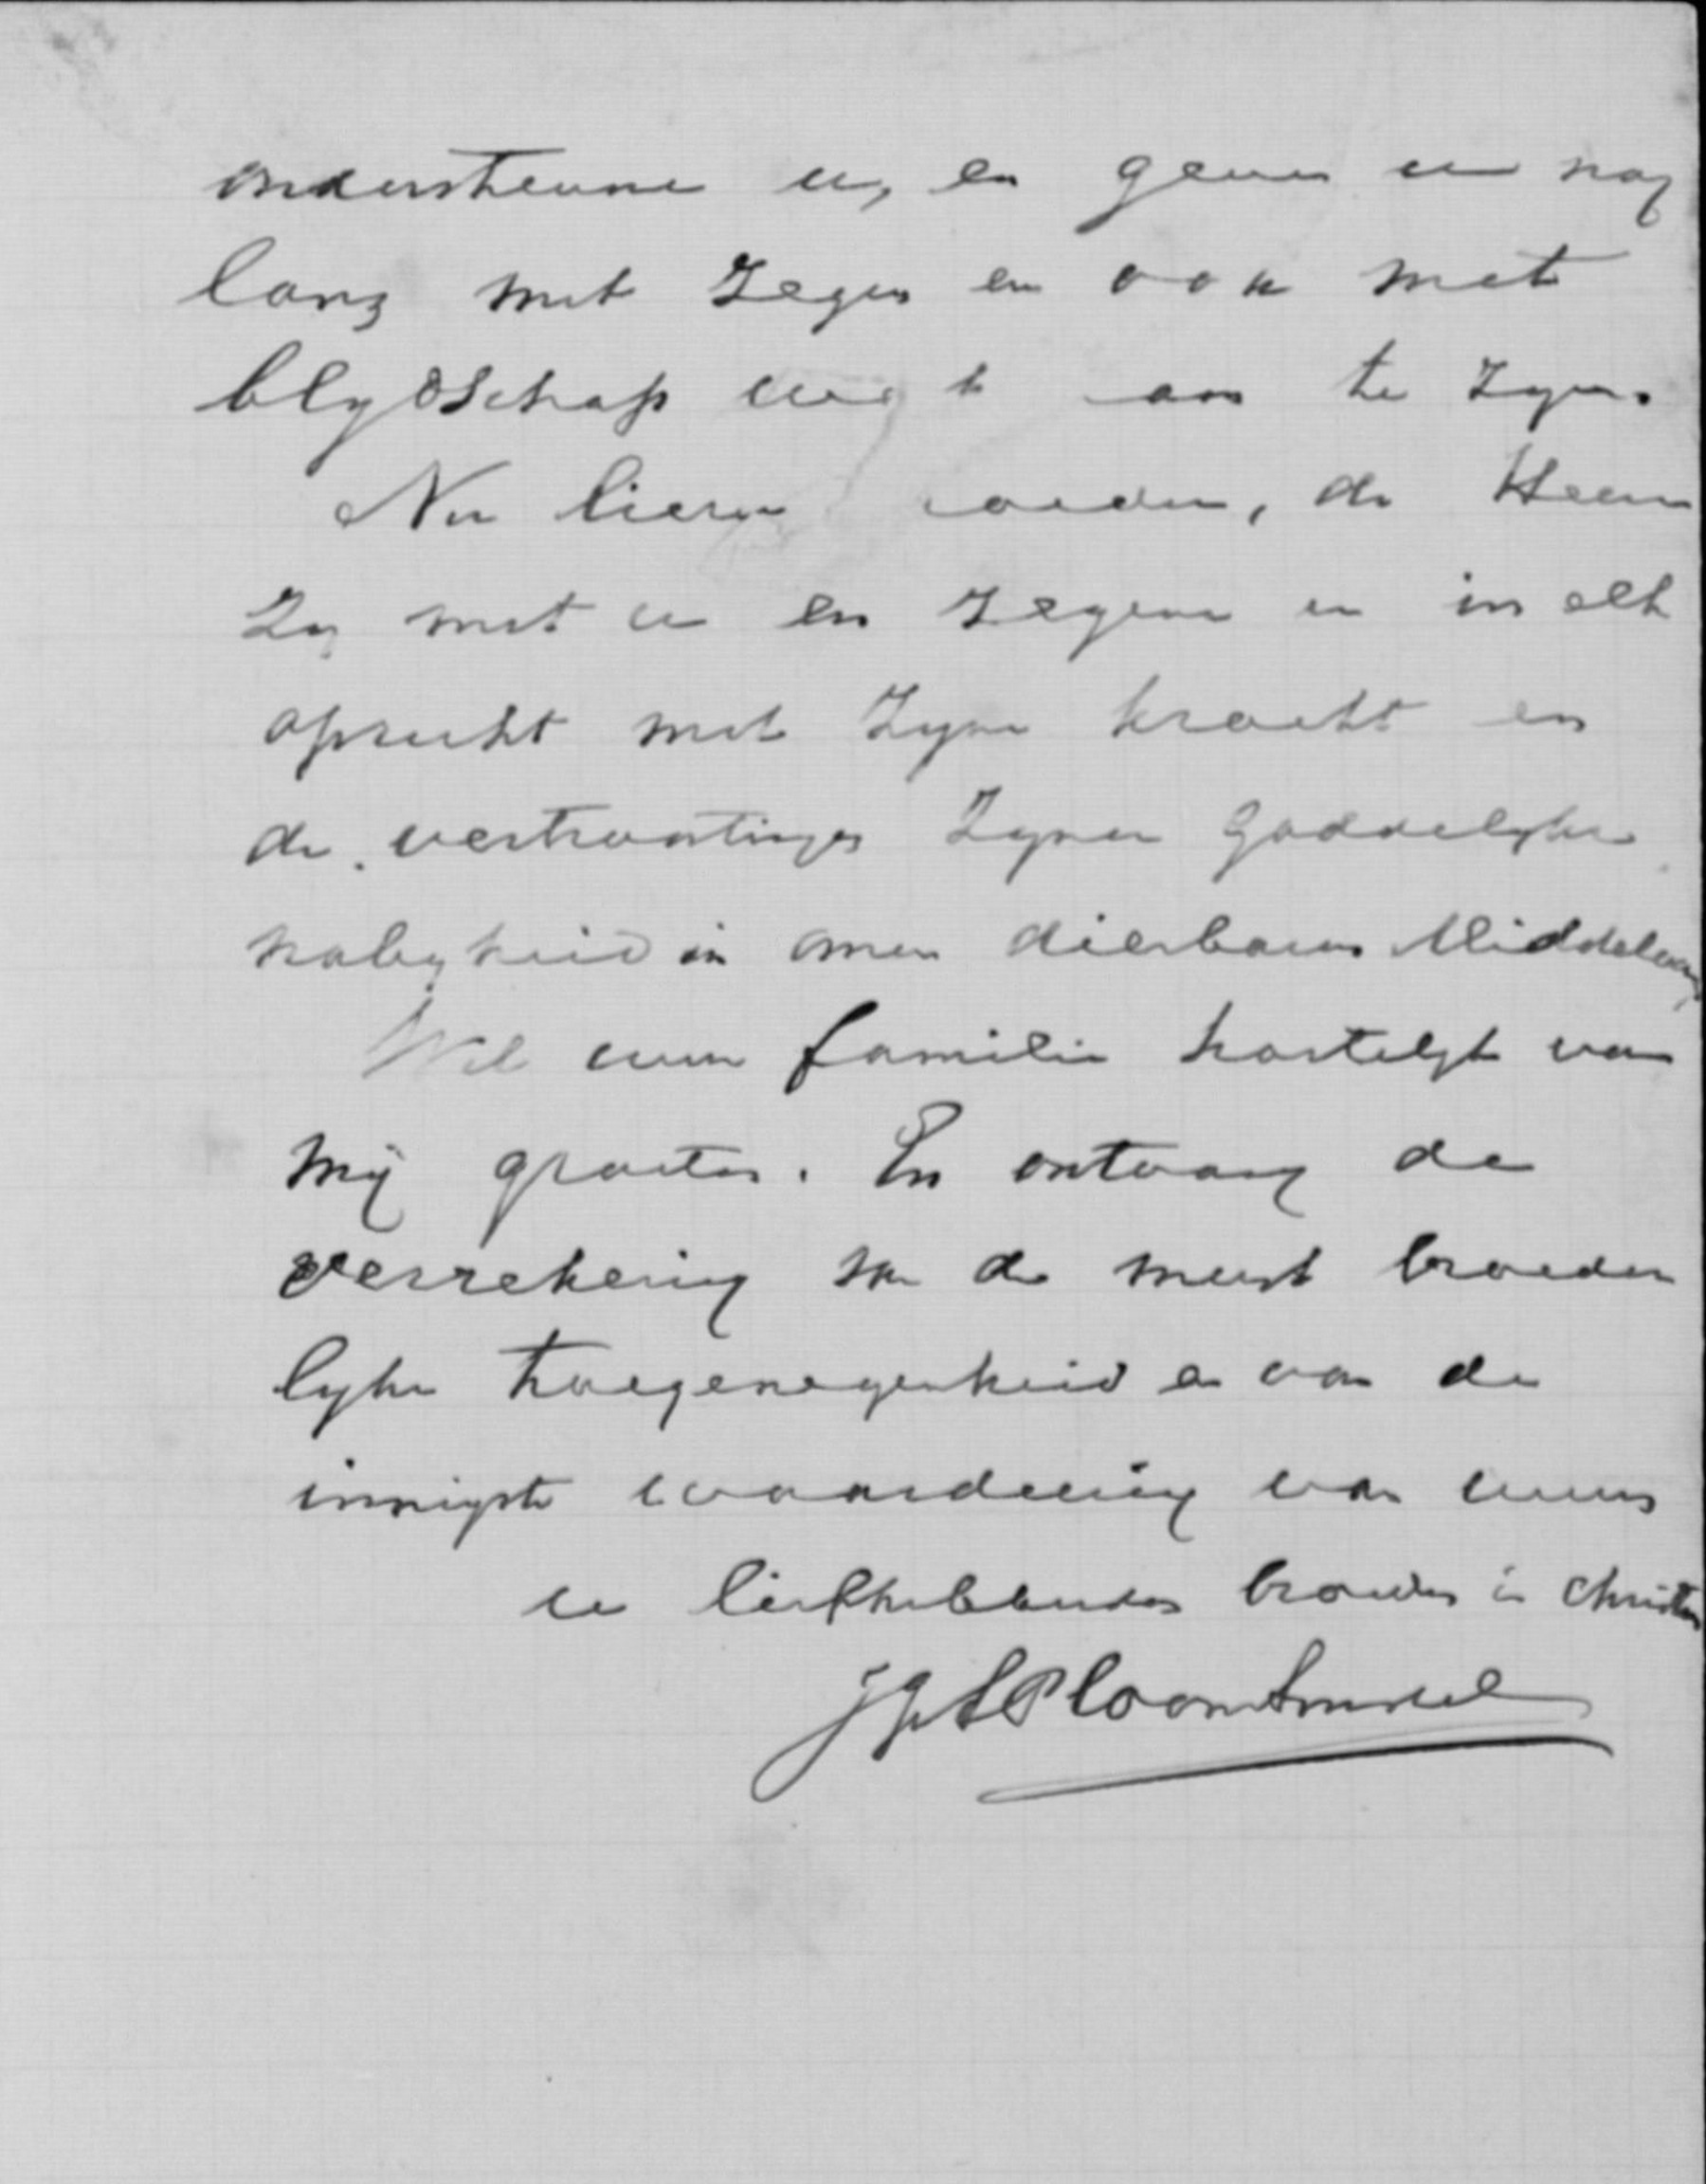 ondersteune u, en geve u nog
lang met zegen en ook met
blydschap te zyn.
Nu lieve broeder, de Heere
zy met u en zegene u in elk
opzicht met Zyne kracht en
de vertroostinge Zyner Goddelyke
nabyheid in onzen dierbaren Middelaar
Wil uwe familie hartelyk van
mij groeten. En ontvang de
verzekering van de meest broeder
lyke toegenegenheid en van de
innigste waardeering van uwen
u liefhebbenden broeder in Christus